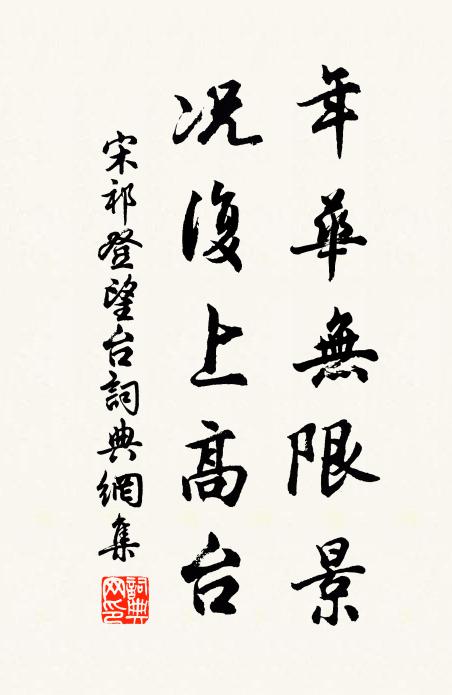 年華無限景
况復上高台
宋祁登望台詞典網集
詞典網印